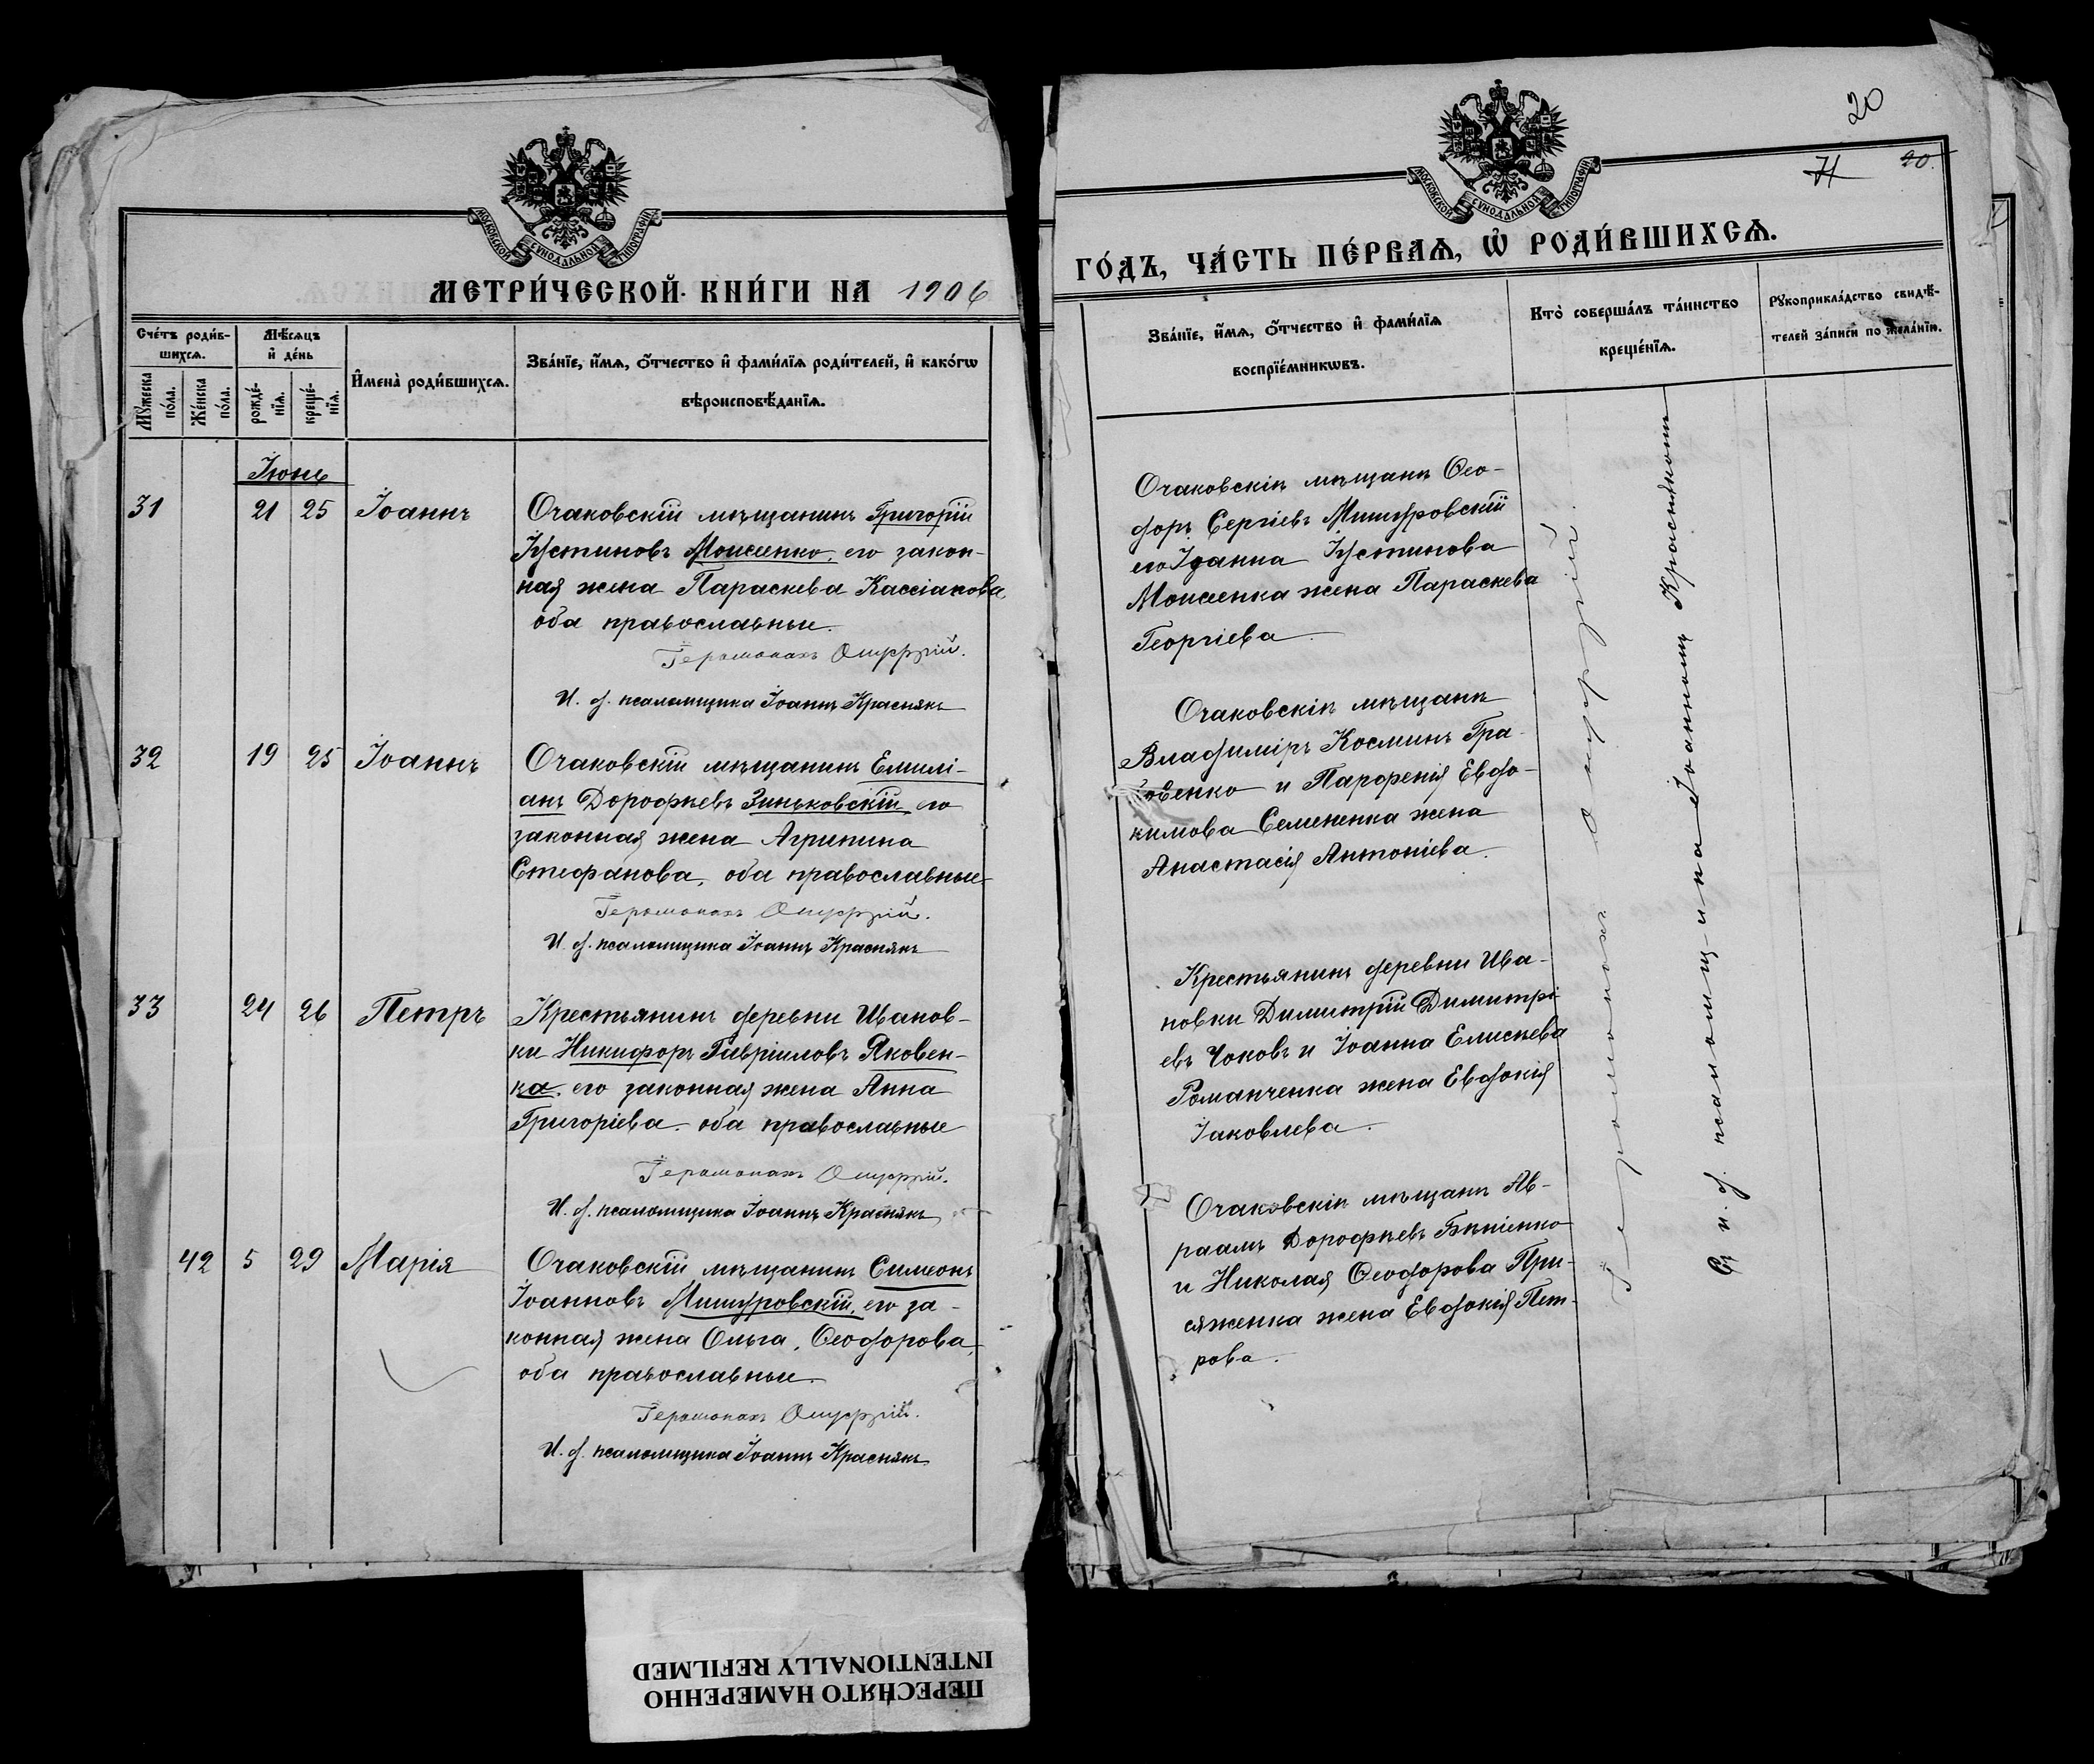 МОСКОВСКОЙ СѴНОДАЛЬНОЙ ТИПОГРАФІИ
МЕТРИ́ЧЕСКОЙ КНИ́ГИ НА 1906
Сче́тъ роди́в-
шихсѧ.
Мꙋ́жеска по́ла.
Же́нска по́ла.
Мѣ́сяцъ
и҆ де́нь
рожде́-
нїѧ.
креще́-
нїѧ.
И҆мена̀ роди́вшихсѧ.
Зва́нїе, и҆́мѧ, ѻ҆́тчество и҆ фами́лїѧ роди́телей, и҆ како́гѡ
вѣроисповѣ́данїѧ.
Іюнь
31 21 25 Іоаннъ
Очаковскій мѣщанинъ Григорій
Іустиновъ Моисеенко, его закон-
ная жена Параскева Кассіанова
оба православные.
Іеромонахъ Онуфрій.
И. д. псаломщика Іоаннъ Краснякъ
32 19 25 Іоаннъ
Очаковскій мѣщанинъ Емилі-
анъ Дорофѣевъ Зиньковскій его
законная жена Агрипина
Стефанова, оба православные
Іеромонахъ Онуфрій.
И. д. псаломщика Іоаннъ Краснякъ
33 24 26 Петръ
Крестьянинъ деревни Иванов-
ки Никифоръ Гавріиловъ Яковен-
ка, его законная жена Анна
Григоріева. оба православные
Іеромонахъ Онуфрій.
И. д. псаломщика Іоаннъ Краснякъ
42 5 29 Марія
Очаковскій мѣщанинъ Симеонъ
Іоанновъ Мишуровскій, его за-
конная жена Ольга, Ѳеодорова,
оба православные.
Іеромонахъ Онуфрій.
И. д. псаломщика Іоаннъ Краснякъ
20
20.
МОСКОВСКОЙ СѴНОДАЛЬНОЙ ТИПОГРАФІИ
ГО́ДЪ, ЧА́СТЬ ПЕ́РВАѦ, Ѡ҆ РОДИ́ВШИХСѦ.
Зва́нїе, и҆́мѧ, ѻ҆́тчество и҆ фами́лїѧ
воспрїе́мникѡвъ.
Кто̀ соверша́лъ та́инство
креще́нїѧ.
Рꙋкоприкла́дство свидѣ́-
телей за́писи по жела́нїю.
Очаковскіе мѣщане Ѳео-
доръ Сергіевъ Мишуровскій
его Іоанна Іустинова
Моисеенка жена Параскева
Георгіева
Очаковскіе мѣщане
Владиміръ Косминъ Гра-
бовенко и Парфенія Евдо-
кимова Семененка жена
Анастасія Антоніева.
Крестьянинъ деревни Ива-
новки Димитрій Димитрі-
евъ Чоковъ и Іоанна Елисѣева
Романченка жена Евдокія
Іаковлева
Очаковскіе мѣщане Ав-
раамъ Дорофѣевъ Бѣпіенко
и Николая Ѳеодорова При-
сяженка жена Евдокія Пет-
рова.
Іеромонахъ Онуфрій.
Съ и. д. псаломщика Іоанномъ Краснякомъ
ПЕРЕСНЯТО НАМЕРЕННО
INTENTIONALLY REFILMED